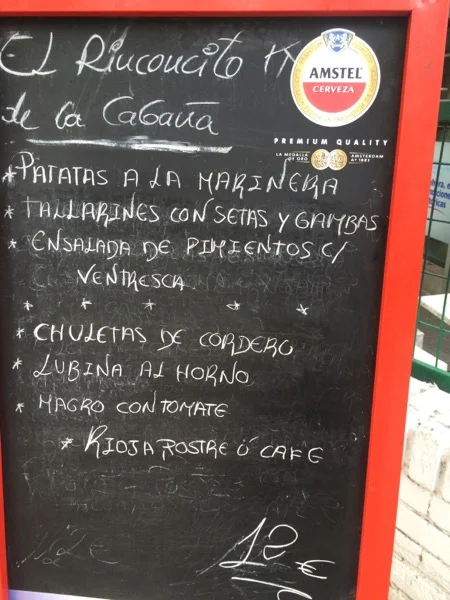 El Rinconcito
de la Cabaña
AMSTEL
CERVEZA
PREMIUM QUALITY
LA MEDALLA DE ORO AMSTERDAM AÑO 1883
* PATATAS A LA MARINERA
* TALLARINES CON SETAS Y GAMBAS
* ENSALADA DE PIMIENTOS C/
VENTRESCA
* * * * *
* CHULETAS DE CORDERO
* LUBINA AL HORNO
* MAGRO CON TOMATE
* RIOJA POSTRE Ó CAFE
12 €